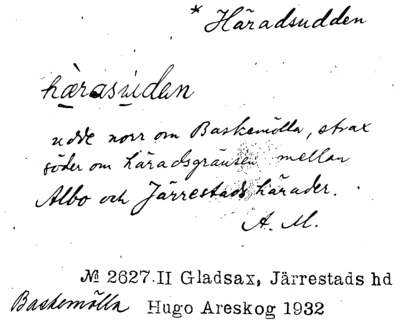 * Häradsudden
hàrasụden
udde norr om Baskemölla, strax
söder om häradsgränsen mellan
Albo och Järrestads härader.
A. M.
№ 2627.II Gladsax, Järrestads hd
Baskemölla Hugo Areskog 1932